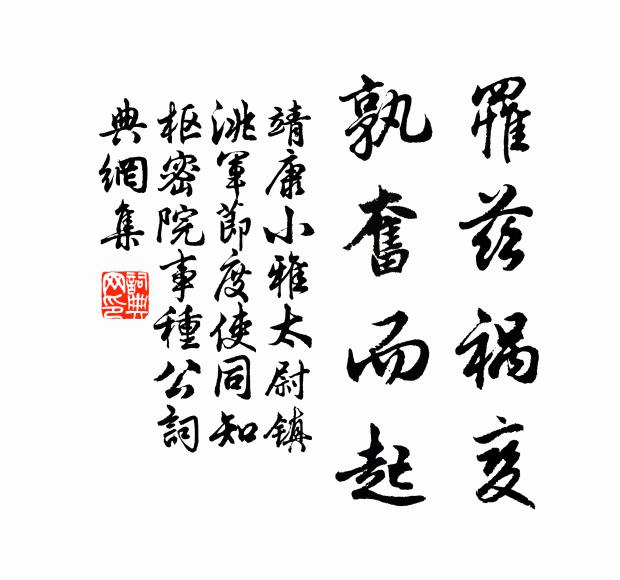 罹兹祸变
孰奮而起
靖康小雅太尉镇
洮軍節度使同知
枢密院事種公詞
典網集
詞典网印